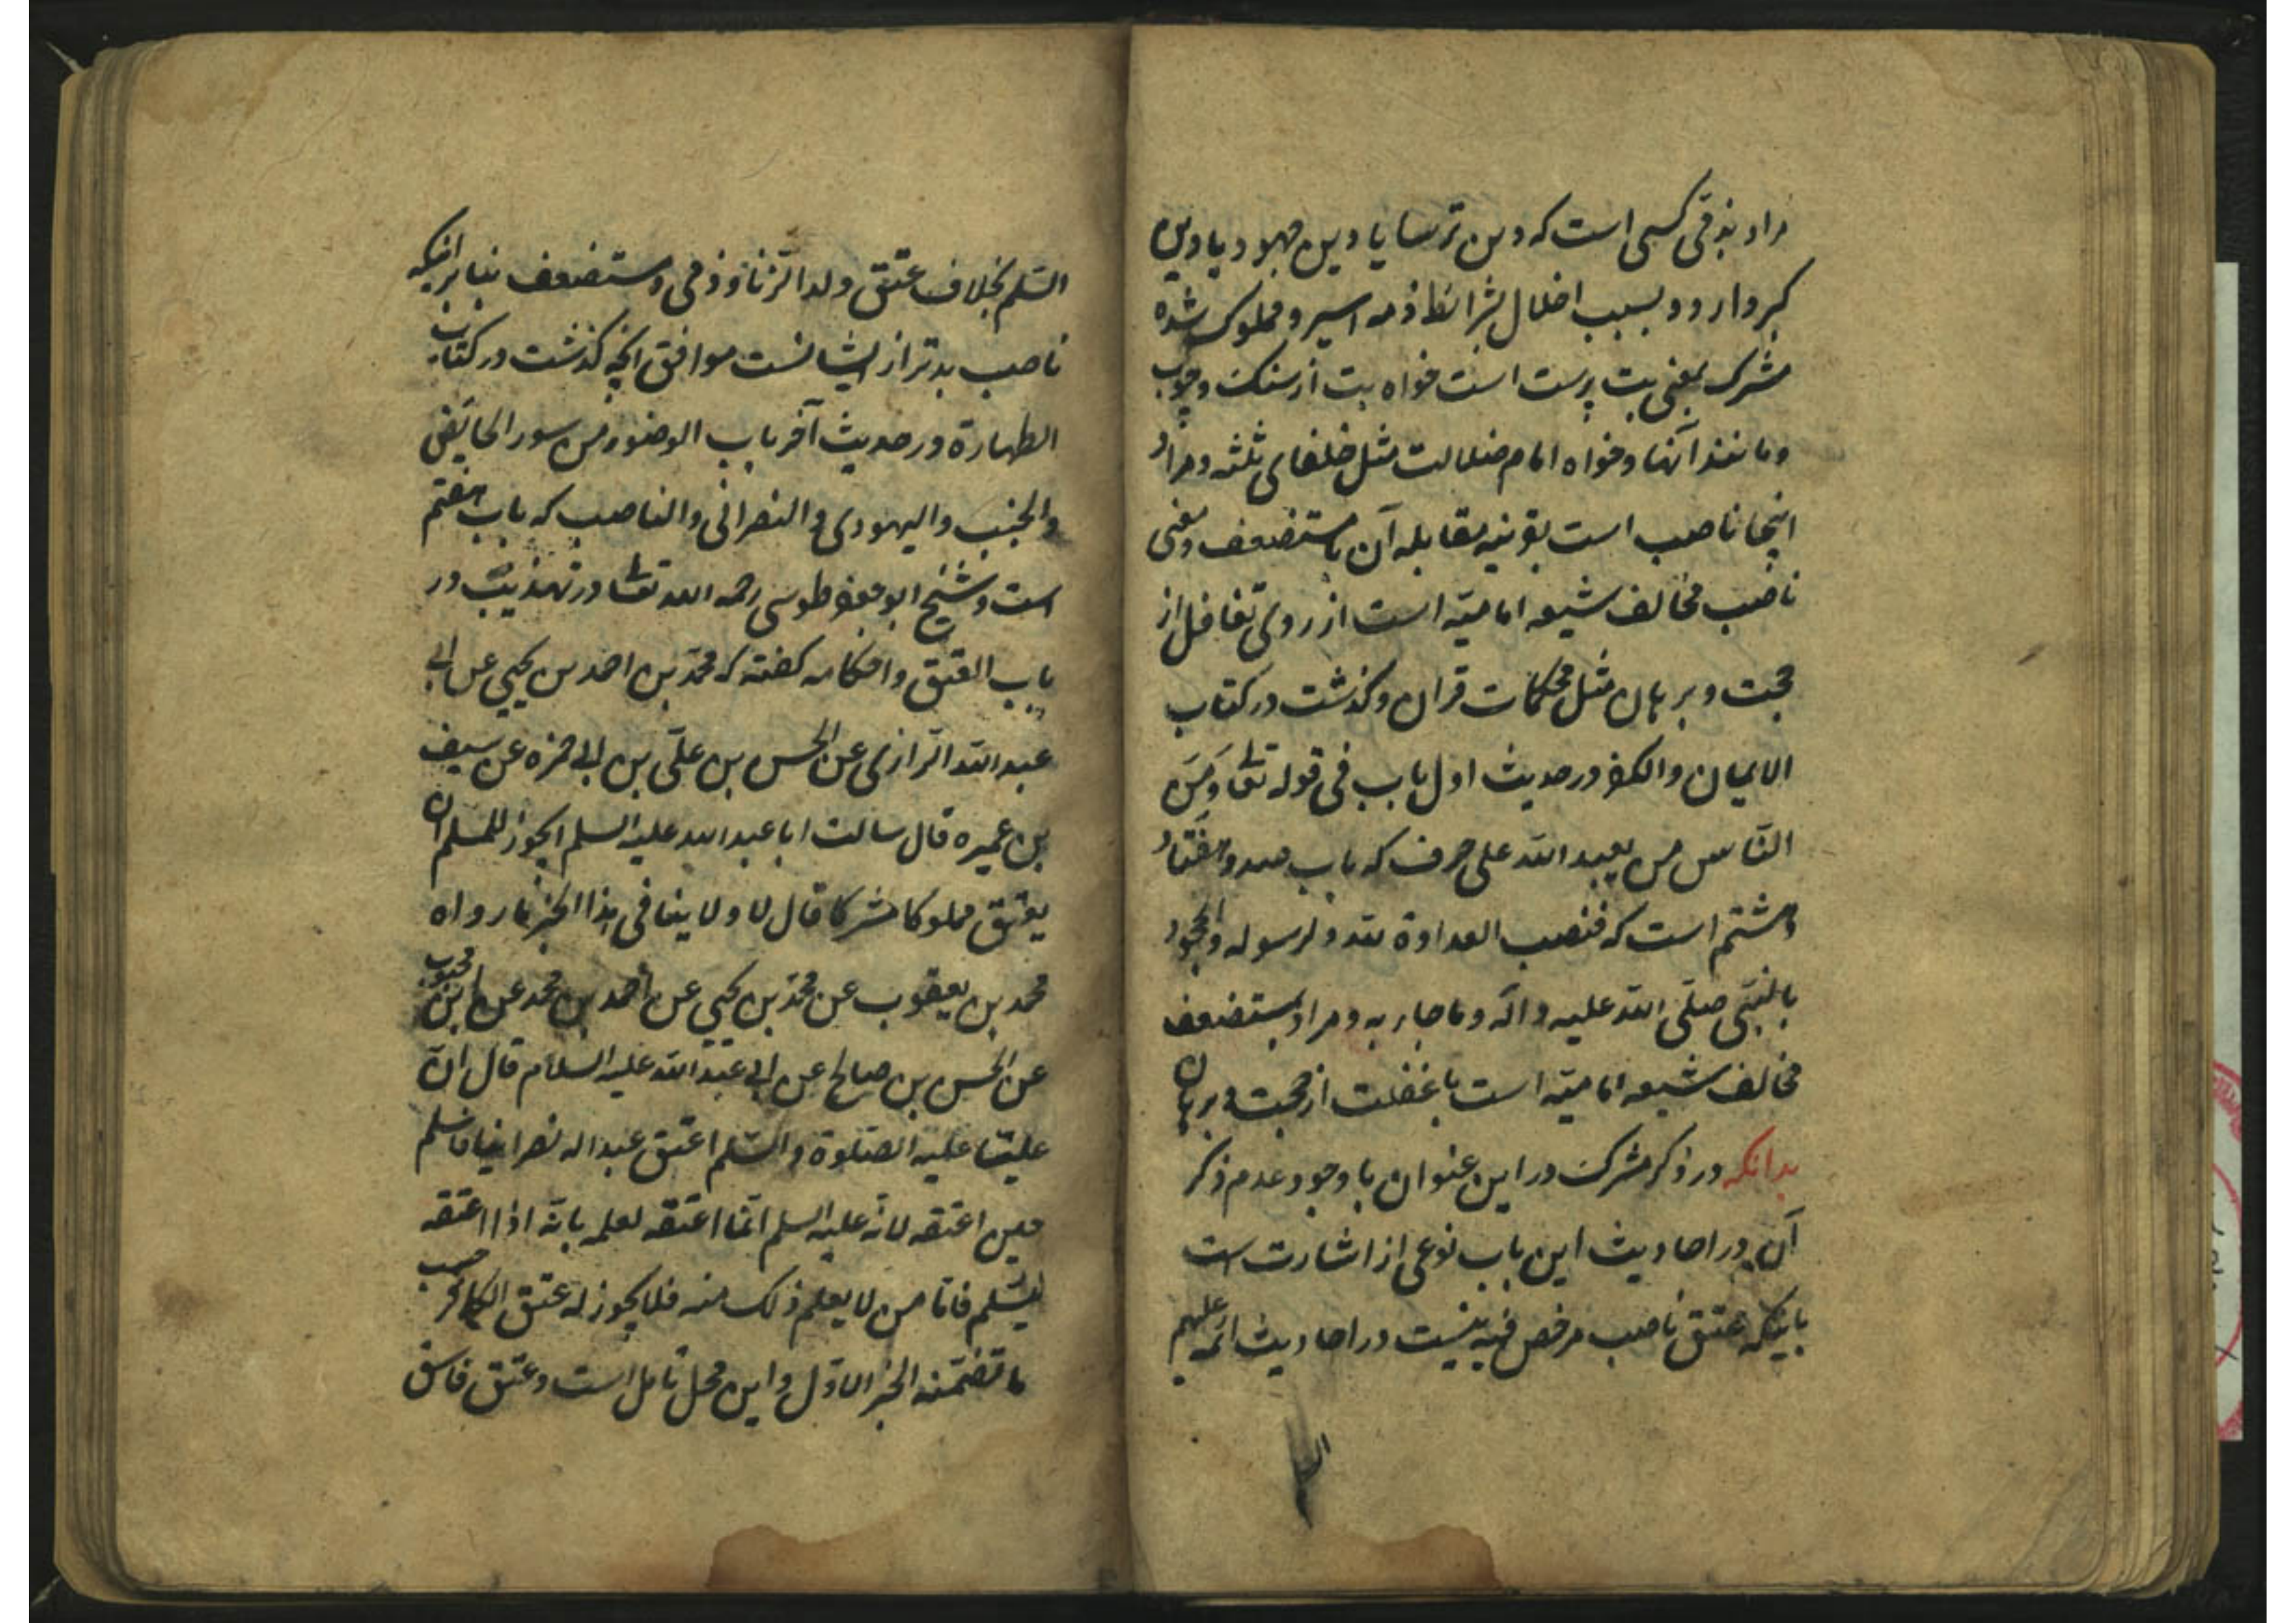 مراد بذمّی کسی است که دین ترسا یا دین جهود یا دین
کبر دارد و بسبب اخلال بشرائط ذمه اسیر و مملوک شده
مشرک بمعنی بت پرست است خواه بت از سنک و چوب
و مانند آنها و خواه امام ضلالت مثل خلفای ثلثه و مراد
اینجا ناصب است بقرینه مقابله آن با مستضعف و معنی
ناصب مخالف شیعه امامیّه است از روی تغافل از
حجت و برهان مثل محکمات قران و کذشت در کتاب
الایمان و الکفر در حدیث اول باب فی قوله تعالی وَمِنَ
النّاس من یعبد الله علی حرف که باب صد و هفتاد
و هشتم است که فنصب العداوة لله و لرسوله و الجحود
بالنبیّ صلّی الله علیه و آله و ما جاء به و مراد بمستضعف
مخالف شیعه امامیّه است با غفلت از حجت و برهان
بدانکه در ذکر مشرک در این عنوان با وجود عدم ذکر
آن در احادیث این باب نوعی از اشارت است
باینکه عتق ناصب مرخص فیه نیست در احادیث ائمه علیهم
السّلم بخلاف عتق ولد الزّنا و ذمی و مستضعف بنابر اینکه
ناصب بدتر از ایشانست موافق انچه کذشت در کتاب
الطهارة در حدیث آخر باب الوضوء من سور الحائض
و الجنب و الیهودی و النصرانی و الناصب که باب هفتم
است و شیخ ابو جعفر طوسی رحمه الله تعالی در تهذیب در
باب العتق و احکامه کفته که محمّد بن احمد بن یحیی عن ابی
عبد الله الرّازی عن الحسن بن علیّ بن ابی حمزه عن سیف
بن عمیره قال سالت ابا عبد الله علیه السلم ایجوز للمسلم ان
یعتق مملوکا مشرکا قال لا و لا ینافی هذا الخبر ما رواه
محمد بن یعقوب عن محمّد بن یحیی عن احمد بن محمد عن ابن محبوب
عن الحسن بن صالح عن ابی عبد الله علیه السلام قال انّ
علیّا علیه الصّلوة و السّلم اعتق عبدا له نصرانیا فاسلم
حین اعتقه لانه علیه السلم انّما اعتقه لعلمه بانّه اذا اعتقه
یسلم فامّا من لا یعلم ذلک منه فلا یجوز له عتق الکافر حسب
ما تضمّنه الخبر الاوّل و این محل تامل است و عتق فاسق